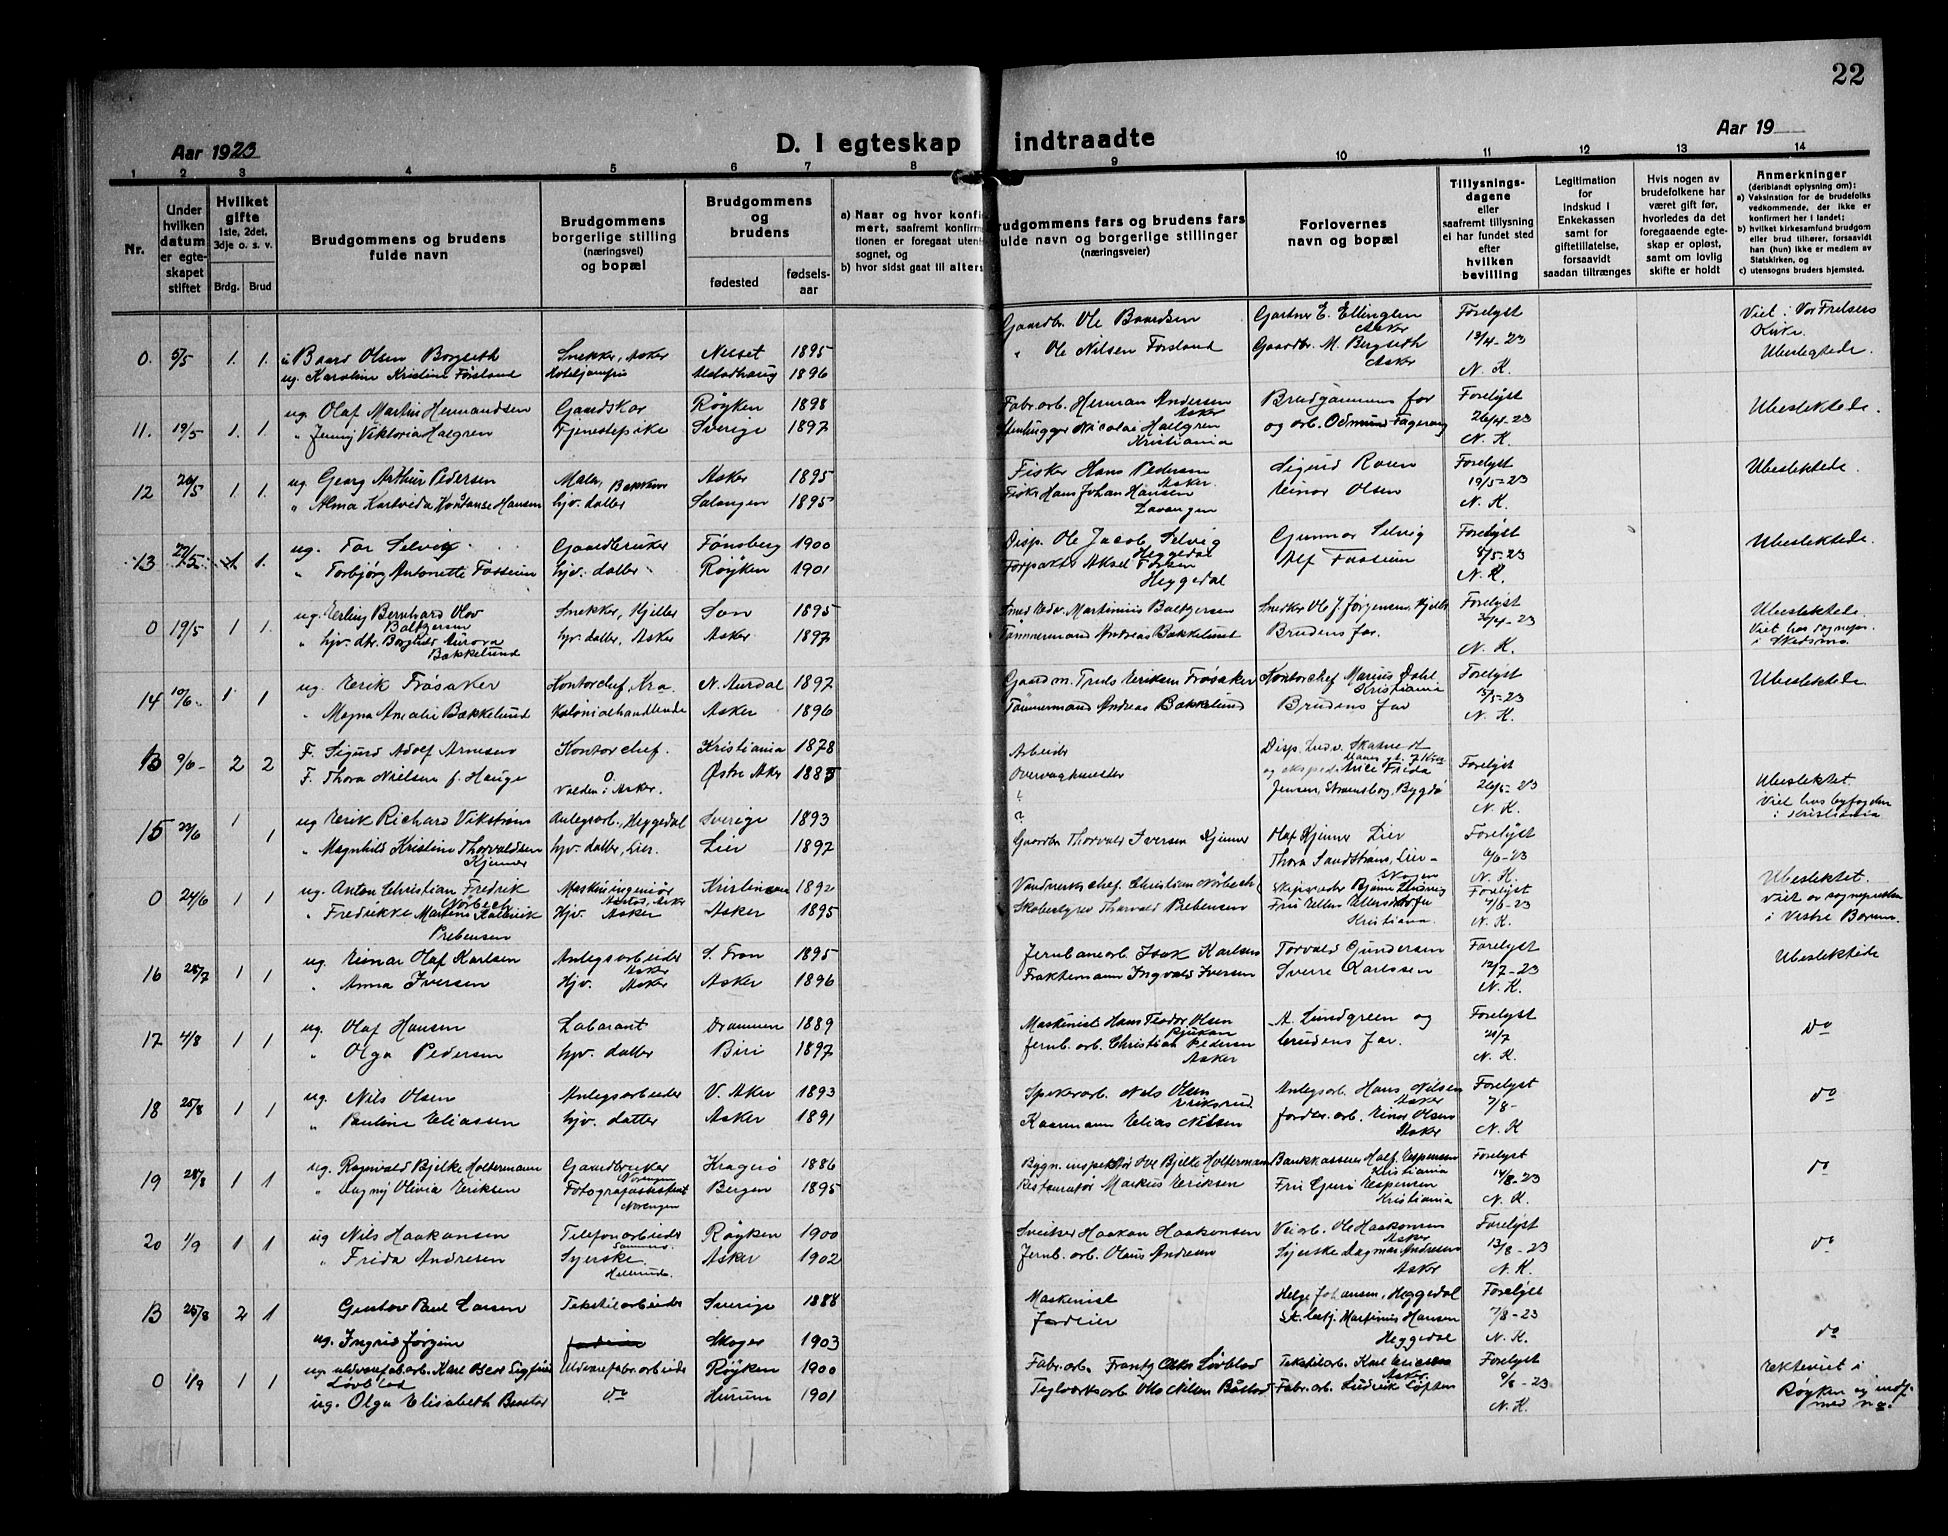 22
Aar 1923
D. I egteskap indtraadte
Aar 19
1 2 3 4 5 6 7 8 9 10 11 12 13 14
Nr.
Under hvilken datum er egteskapet stiftet
Hvilket gifte 1ste, 2det, 3dje o. s. v.
Brdg. Brud
Brudgommens og brudens fulde navn
Brudgommens borgerlige stilling (næringsvei) og bopæl
Brudgommens og brudens
fødested fødselsaar
a) Naar og hvor konfi
mert, saafremt konfirm
tionen er foregaat utenf
sognet, og
b) hvor sidst gaat til alters
rudgommens fars og brudens fars
fulde navn og borgerlige stillinger
(næringsveier)
Forlovernes navn og bopæl
Tillysningsdagene eller saafremt tillysning ei har fundet sted efter hvilken bevilling
Legitimation for indskud i Enkekassen samt for giftetillatelse, forsaavidt saadan tiltrænges
Hvis nogen av brudefolkene har været gift før, hvorledes da det foregaaende egteskap er opløst, samt om lovlig skifte er holdt
Anmerkninger
(deriblandt oplysning om):
a) Vaksination for de brudefolks vedkommende, der ikke er konfirmert her i landet;
b) hvilket kirkesamfund brudgom eller brud tilhører, forsaavidt han (hun) ikke er medlem av Statskirken, og
c) utensogns bruders hjemsted.
0. 5/5 1. 1. Baard Olsen Borgseth Snekker, Asker Nesset 1895 Gaardbr. Ole Baardsen Gartner E. Ellingsen Asker Forelyst 13/4-23 N. K. Viet i Vor Frelsers Kirke.
ug. Karoline Kristine Førsland Hoteljomfru 1896 " Ole Nilsen Forsland Gaardbr. M. Bergseth Asker Ubeslegtede.
11. 19/5 1. 1. ug. Olaf Martin Hermandsen Gaardskar Røyken 1898 Fabr.arb. Herman Andersen Asker Brudgommens far Forelyst 26/4-23 N. K. Ubeslektede.
" Jenny Viktoria Halgren Tjenestepike Sverige 1897 Stenhugger Nicolai Hallgren Kristiania og arb. Odmund Fagerang
12 26/5 1. 1. ug. Georg Arthur Pedersen Maler, Bakken Asker 1895 Fisker Hans Pedersen Asker. Sigurd Rosen Forelyst 19/5-23 N. K. Ubeslektede.
" Alma Hansen hjv. datter Salangen 1895 Fisker Hans Johan Hansen Lavangen Einar Olsen
13 27/5 1. 1. ug. Tor Selvig Gaardbruker Tønsberg 1900 Disp. Ole Jacob Selvig Heggedal Gunnar Selvig Forelyst 8/5-23 N. K. Ubeslektede.
" Torbjørg Antonette Fossum hjv. datter Røyken 1901 Forpakter Aksel Heggedal Alf Fossum
0 19/5 1 1. ug. Erling Bernhard Olav Baltzersen Snekker, Kjeller Son 1895 Smed Edv. Martinius Baltzersen Snedker Ole J. Jørgensen, Kjeller Forelyst 26/4-23 N. K. Ubeslektede
" hjv. dtr. Borghild Aurora Bækkelund hjv. datter, Asker Asker 1897 Tømmermand Andreas Bækkelund Brudens far. Viet hos sognepr. i Skedsmo.
14 10/6. 1 1 ug. Erik Frøsaker Kontorchef, Kra. N. Aurdal 1897 Gaardm. Truls Eriksen Frøsaker Kontorchef Marius Dahl Kristiania Forelyst 15/5-23 N. K. Ubeslektede
" Magna Amalie Bækkelund Kolonialhandlende Asker 1896 Tømmermand Andreas Bækkelund Brudens far
B 9/6- 2 2 F. Sigurd Adolf Arnesen Kontorchef. Kristiania 1878 Arbeider Forelyst 26/5-23 N. K.
F. Thora Nielsen f. Hauge Valden i Asker. Østre Aker 1885 Overvagtmester Jensen, Strømsborg, Bygdø Ubeslektet. Viet hos byfogden i Kristiania
15 23/6 1 1 ug Erik Richard Vikstrøm Anlegsarb., Heggedal Sverige 1893 ? ? Olaf Kjenner Lier Forelyst 6/6-23 N. K.
" Magnhild Kristine Thorvaldsen Kjenner hjv. datter, Lier. Lier 1897 Gaardbr. Thorvald Iversen Kjenner Thora Sandstrøm, Lier-Skogen
0 24/6 1 1 ug. Anton Christian Fredrik Nørbech Maskiningeniør Kristiansand 1892 Vandverkschef. Christian Nørbech Forelyst 7/6-23 N. K. Ubeslektet. Viet av sognepresten i Vestre Bærum.
" Fredrikke Martine Prebensen Hjv. Asker Asker 1895 Skobestyrer Thorvald Prebensen Kristiania.
16 28/7 1 1 ug. Einar Olaf Karlsen Anlegsarbeider Asker S. Fron 1895 Jernbanearb. Isak Karlsen Torvald Gundersen Forelyst 12/7-23 N. K. Ubeslektede
" Anna Iversen Hjv. Asker Asker 1896 Fraktemann Ingvald Iversen Sverre Karlssen
17 4/8 1 1 ug. Olaf Hansen Laborant Drammen 1889 Maskinist Hans Teodor Olsen Rjukan A. Lundgreen og Forelyst 21/7 N. K. do
" Olga Pedersen hjv. datter Biri 1897 Jernb. arb. Christian Pedersen Asker brudens far.
18 25/8 1 1 ug. Nils Olsen Anlegsarbeider V. Aker 1893 Spikerarb. Nels Olsen Eriksrud Anlegsarb. Hans Nilsen Asker Forelyst 7/8- N. K do
" Pauline Eliassen hjv. datter Asker 1891 Kaarmann Elias Nilsen Jordar. arb. Einar Olsen Asker
19 28/8 1 1 ug. Ragnvald Bjelke Holtermann Gaardbruker Kragerø 1886 Bygn. inspektør Ove Bjelke Holtermann Bankkasserer Halfd. Espensen Kristiania Forelyst 14/8-23 N. K. do
" Dagny Olivia Eriksen Fotografassistent Bergen 1895 Restauratør Markus Eriksen Fru Guri Espensen Kristiania
20 1/9 1 1 ug Nils Haakonsen Telefonarbeider Røyken 1900 Sveitser Haakon Haakonsen Veiarb. Ole Haakonsen Asker Forelyst 13/8-23 N. K. do
" Frida Andresen Syerske Asker 1902 Jernb. arb. Olaus Andresen Syerske Dagmar Andresen Asker
B 25/8 2 1 Gustav Paul Larsen Tekstilarbeider Sverige 1888 Maskinist Helge Johansen, Heggedal Forelyst 7/8-23 N. K. do
ug. Ingrid Jørgine Skoger 1903 Martinius Hansen Heggedal
0 1/9 1 1 ug uldvarefabarb. Karl Bert Sigfrid Løvblad Uldvarefabr.arbeider Røyken 1900 Fabr.arb. Frantz Otto Løvblad Tekstilarb. Karl Asker. Forelyst 9/8-23 N. K.
ug. Olga Elisabeth Baastad do Hurum 1901 Teglverksarb. Ole Nilsen Båstad Fabr.arb. Ludvik Løften ektviet i Røyken og indf. med no.